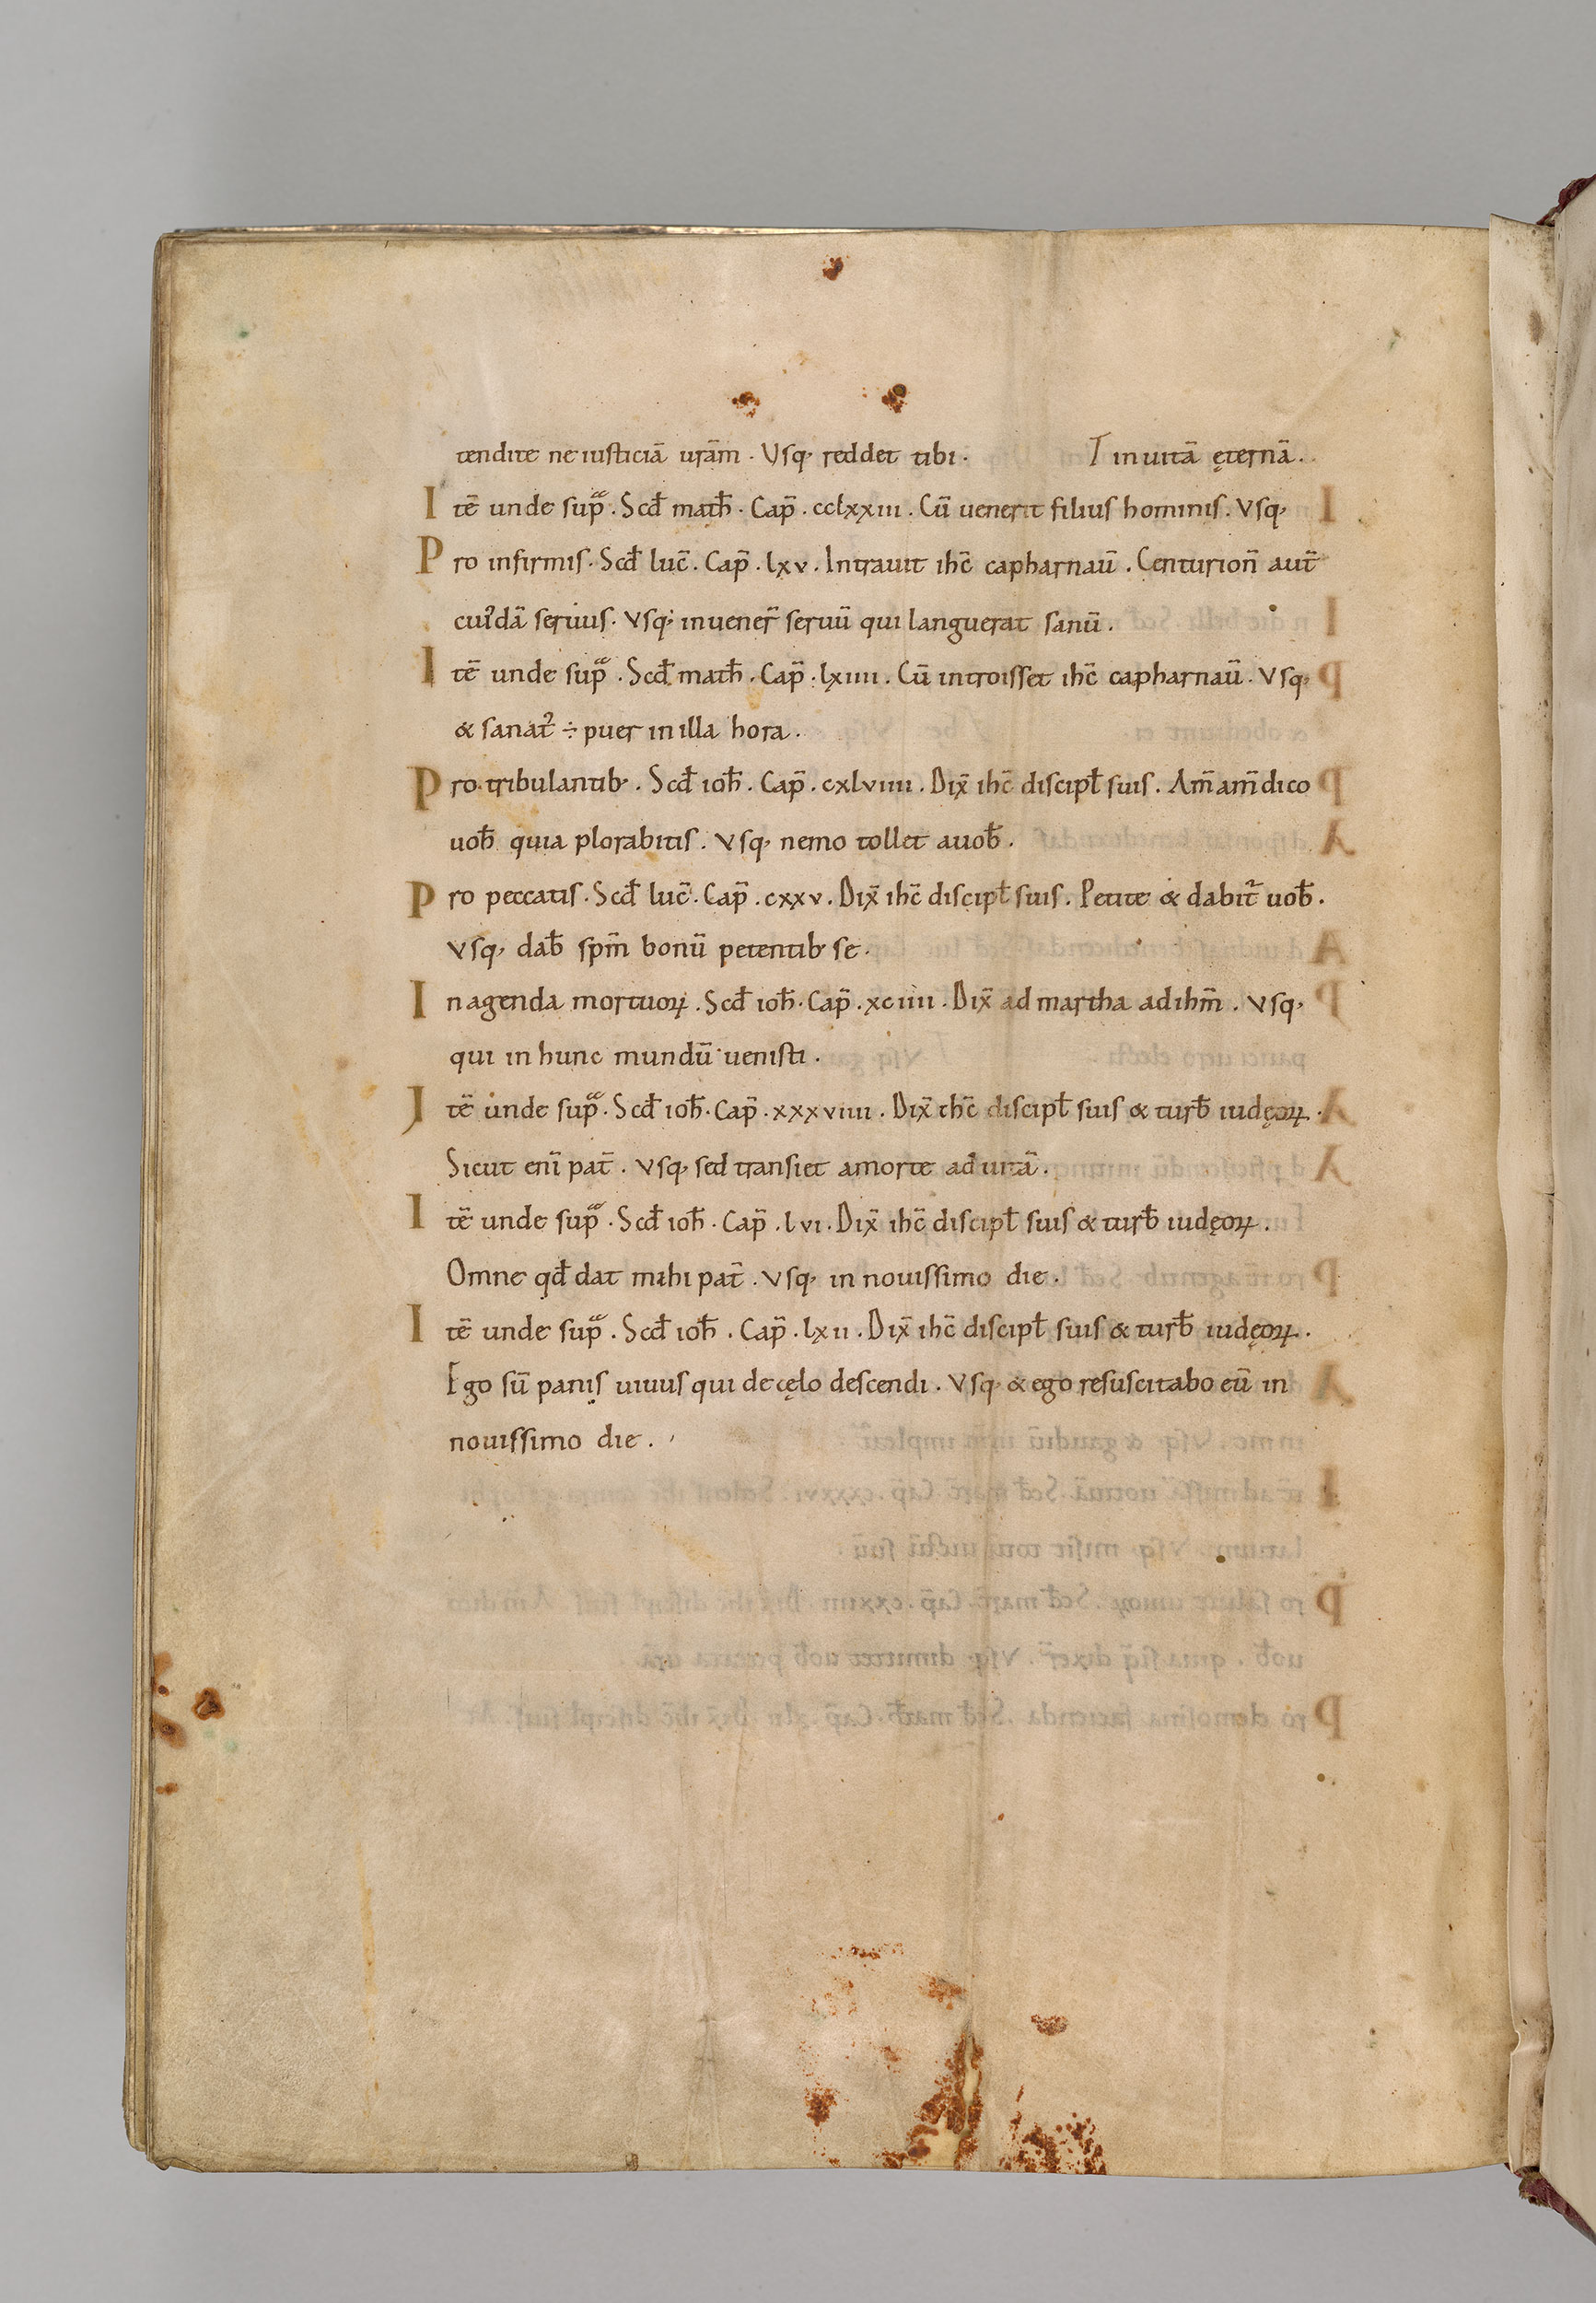 tendite ne iusticiā urām . Vsq; reddet tibi . T in uitā ęternā .
Itē unde sup̄ᵃ . Scđ math̄ . Cap̄ . cclxxiii . Cū uenerit filius hominis . Vsq;
Pro infirmis . Scđ luc̄ . Cap̄ . lxv . Intrauit ihc̄ capharnaū . Centurion̄ aut̄
cuiᵈdā seruus . Vsq; inuener̄ seruū qui languerat sanū .
Itē unde sup̄ᵃ . Scđ math̄ . Cap̄ . lxiiii . Cū introisset ihc̄ capharnaū . Vsq;
& sanat᷒ ÷ puer in illa hora .
Pro tribulantib; . Scđ ioh̄ . Cap̄ . cxlviiii . Dix̄ ihc̄ discipł suis . Am̄ am̄ dico
uob̄ quia plorabitis . Vsq; nemo tollet a uob̄ .
Pro peccatis . Scđ luc̄ . Cap̄ . cxxv . Dix̄ ihc̄ discipł suis . Petite & dabit᷒ uob̄ .
Vsq; dab̄ sp̄m bonū petentib; se .
In agenda mortuoꝝ . Scđ ioh̄ . Cap̄ . xciiii . Dix̄ ad martha ad ihm̄ . Vsq;
qui in hunc mundū uenisti .
Itē unde sup̄ᵃ . Scđ ioh̄ . Cap̄ . xxxviiii . Dix̄ ihc̄ discipł suis & turb̄ iudęoꝝ .
Sicut eni̅ pat̄ . Vsq; sed transiet a morte ad uitā .
Itē unde sup̄ᵃ . Scđ ioh̄ . Cap̄ . lvi . Dix̄ ihc̄ discipł suis & turb̄ iudęoꝝ .
Omne qđ dat mihi pat̄ . Vsq; in nouissimo die .
Itē unde sup̄ᵃ . Scđ ioh̄ . Cap̄ . lxii . Dix̄ ihc̄ discipł suis & turb̄ iudęoꝝ .
Ego sū panis uiuus qui de cęlo descendi . Vsq; & ego resuscitabo eū in
nouissimo die .